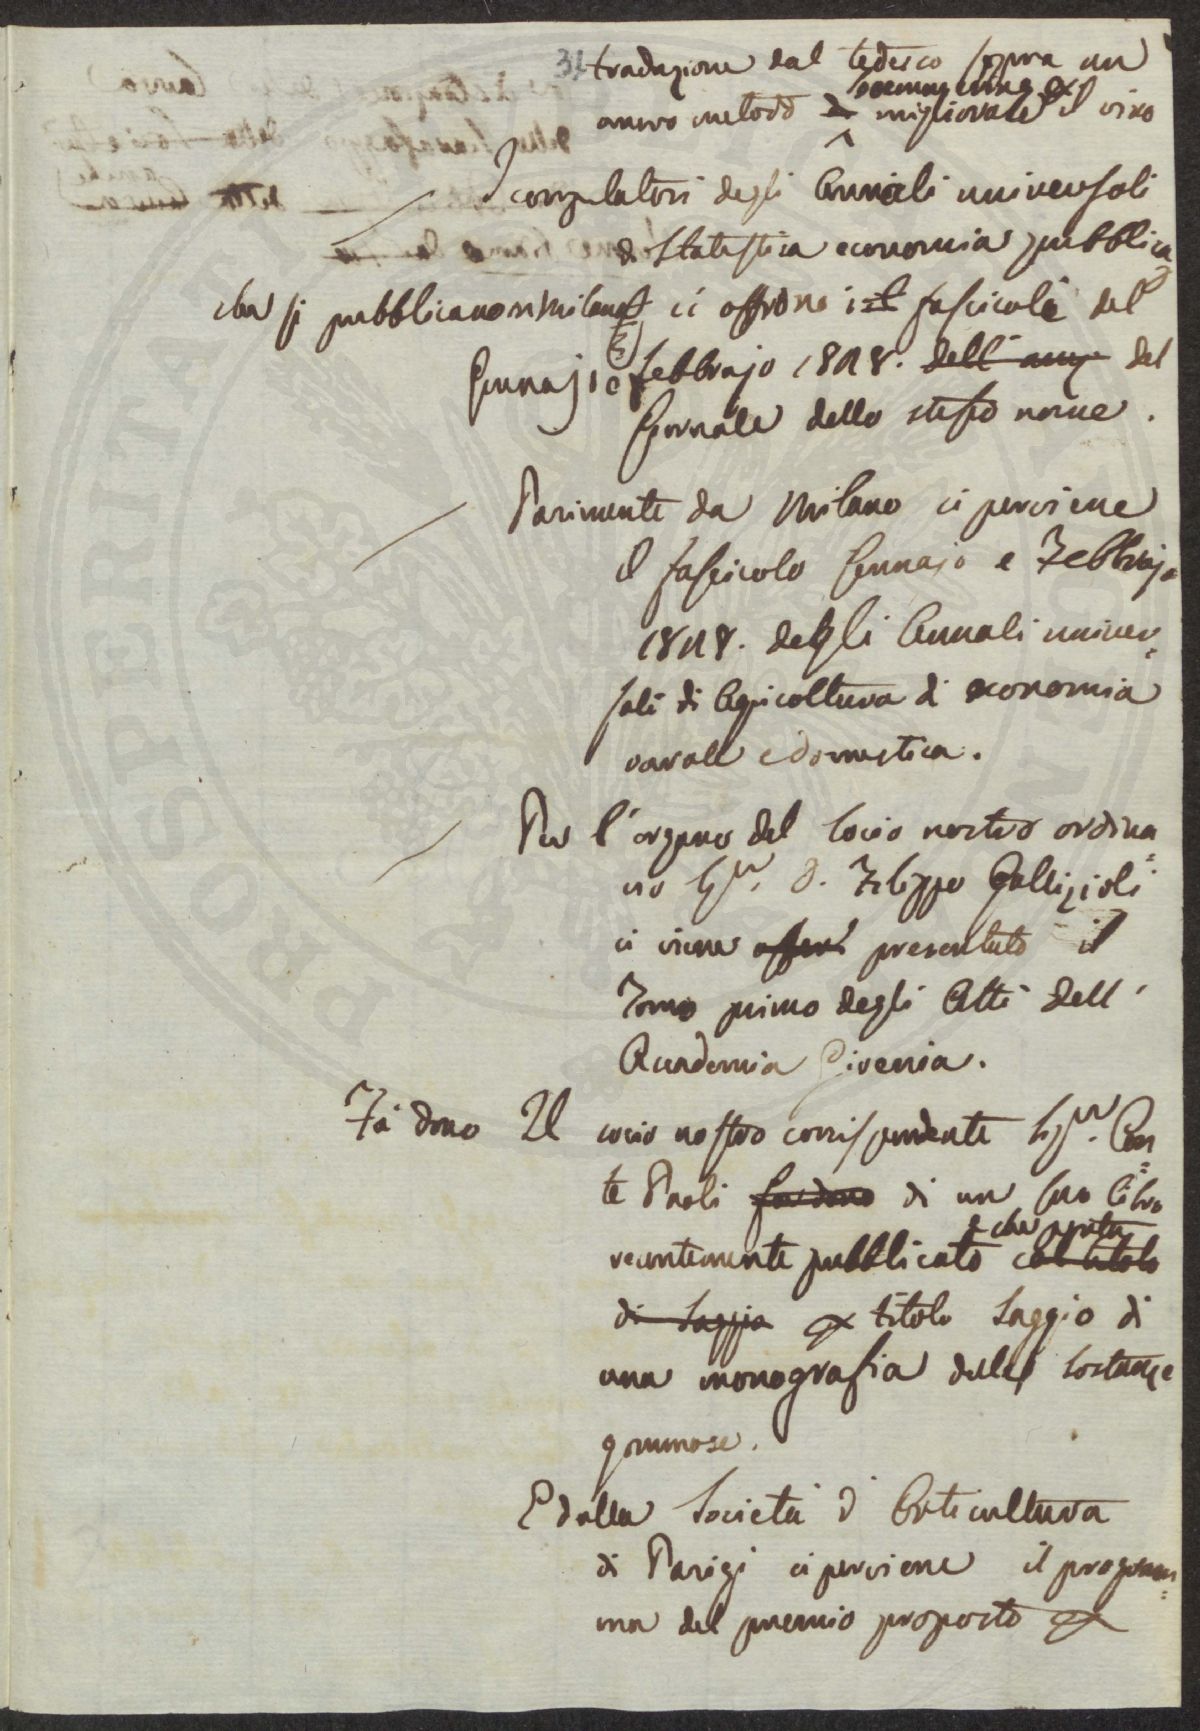 31 traduzione dal tedesco sopra un
nuovo metodo di migliorare il vino
I compilatori degli Annali universali
di Statistica economia pubblica
che si pubblicano in Milano ci offrono i fascicoli del
Gennajo e Febbrajo 1828. dell' anno del
Giornale dello stesso nome.
Parimente da Milano ci perviene
il fascicolo Gennajo e Febbrajo
1828. degli Annali univer=
sali di Agricoltura di economia
rurale e domestica.
Per l'organo del Socio nostro ordina=
rio Sigr. D. Filippo Gallizioli
ci viene offerto presentato il
Tomo primo degli Atti dell'
Accademia Gioenia.
Fà dono Il socio nostro corrispondente Sigr. Con=
te Paoli fa dono di un suo libro
e che porta
recentemente pubblicato col titolo
di Saggio titolo Saggio di
una monografia delle sostanze
gommose.
E dalla Società d' Orticultura
di Parigi ci perviene il program=
ma del premio proposto
PROSPERITÀ